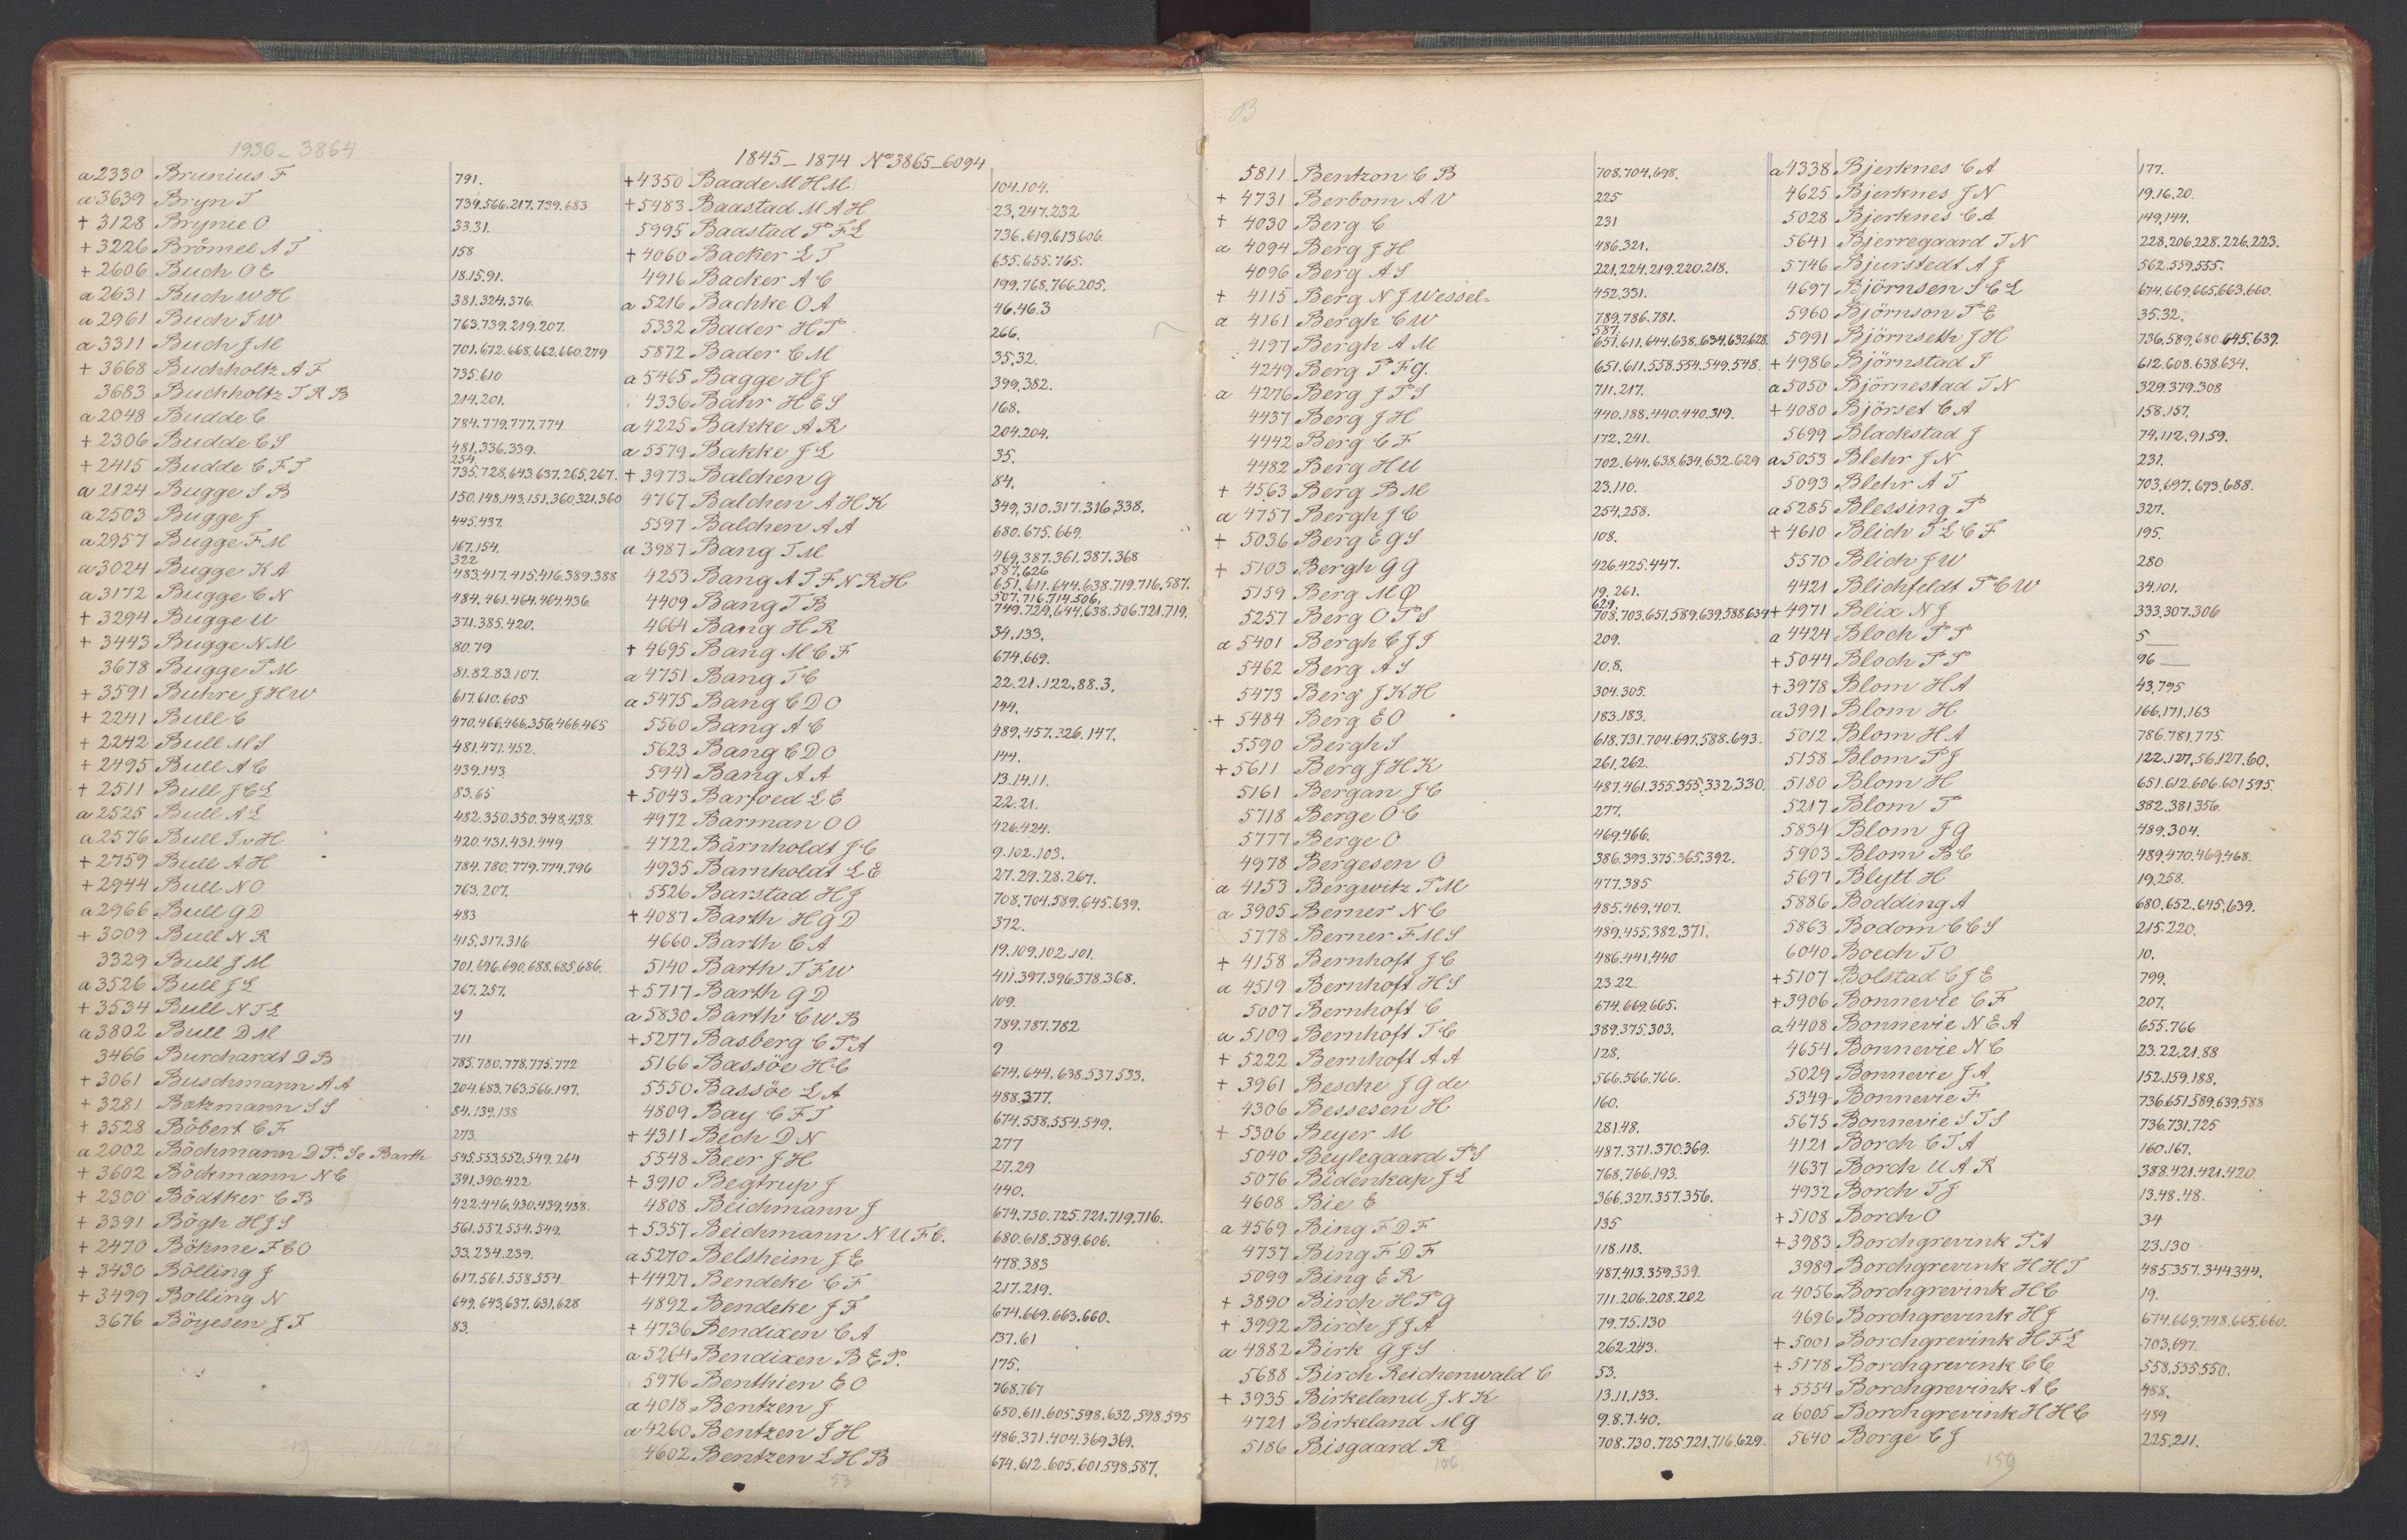 1936_3864
a 2330 Brunius F 791.
a 3639 Bryn T 739.566.217.739.683
+ 3128 Brynie O 33.31.
+ 3226 Brömel A T 158
+ 2606 Buch O E 18.15.91.
a 2631 Buch W H 381.324.376.
a 2961 Buch J W 763.739.219.207.
a 3311 Buch J M 701.672.668.662.660.279
+ 3668 Buchholtz A F 735.610
3683 Buchholtz T R B 214.201.
a 2048 Budde C 784.779.777.774
+ 2306 Budde C S 481.336.339.
254
+ 2415 Budde C F T 735.728.643.637.265.267.
a 2124 Bugge S B 150.148.143.151.360.321.360
a 2503 Bugge J 445.437.
a 2957 Bugge F M 167.154.
322
a 3024 Bugge K A 483.417.415.416.389.388
a 3172 Bugge C N 484.461.464.464.436.
+ 3294 Bugge U 371.385.420.
+ 3443 Bugge N M 80.79
3678 Bugge P M 81.82.83.107.
+ 3591 Buhre J H W 617.610.605
+ 2241 Bull C 470.466.466.356.466.465
+ 2242 Bull M S 481.471.452.
+ 2495 Bull A C 439.143
+ 2511 Bull J C L 83.65
a 2525 Bull A L 482.350.350.348.438.
a 2576 Bull J v H 420.431.431.449
+ 2759 Bull A H 784.780.779.774.796
+ 2944 Bull N O 763.207.
a 2966 Bull G D 483
+ 3009 Bull N R 415.317.316
3329 Bull J M 701.696.690.688.685.686.
a 3526 Bull J L 267.257.
+ 3534 Bull N T L 9
a 3802 Bull D M 711
3466 Burchardt D B 785.780.778.775.772
+ 3061 Buschmann A A 204.683.763.566.197.
+ 3281 Batzmann S S 84.139.138
+ 3528 Böbert C F 273.
a 2002 Böchmann D P. Se Barth 545.553.552.549.264
+ 3602 Böckmann N C 391.390.422
+ 2300 Bödtker C B 422.446.430.439.438.
+ 3391 Bögh H J S 561.557.554.549.
+ 2470 Böhme F E O 33.234.239.
+ 3430 Bölling J 617.561.558.554
+ 3499 Bölling N 649.643.637.631.628
3676 Böyesen J F 83.
1845_1874 No 3865_6094
+ 4350 Baade M H M 104.104.
+ 5483 Baastad M A H 23,247.232
5995 Baastad P F L 736.619.613.606.
+ 4060 Backer L T 655.655.765.
4916 Backer A C 199.768.766.205.
a 5216 Bachke O A 46.46.3
5332 Bader H P 266.
5872 Bader C M 35,32.
a 5465 Bagge H J 399,382.
4336 Bahr H E S 168.
a 4225 Bakke A R 204.204.
a 5579 Bakke J L 35.
+ 3973 Balchen G 84.
4767 Balchen A H K 349,310.317.316,338.
5597 Balchen A A 680.675.669.
a 3987 Bang T M 469,387.361.387.368
587.626
4253 Bang A T F N R H 651.611.644.638.719.716.587.
507.716.714.506.
4409 Bang T B 749.729.644.638.506.721.719.
4664 Bang H R 34,133.
+ 4695 Bang M C F 674.669.
a 4751 Bang T C 22.21.122.88.3.
a 5475 Bang C D O 144.
5560 Bang A C 489.457.326.147.
5623 Bang C D O 144.
5941 Bang A A 13.14.11.
+ 5043 Barfoed L E 22.21.
4972 Barman O O 426.424.
4722 Bärnholdt J C 9.102.103.
4935 Barnholdt L E 27.29.28.267.
5526 Barstad H J 708.704.589.645.639.
+ 4087 Barth H G D 372.
4660 Barth C A 19.109.102.101.
5140 Barth T F W 411.397.396.378.368.
+ 5717 Barth G D 109.
a 5830 Barth C W B 789.787.782
+ 5277 Basberg C P A 9
5166 Bassöe H C 674.644.638.537.533.
5550 Bassöe L A 488.377.
4809 Bay C F T 674.558.554.549.
+ 4311 Bech D N 277
5548 Beer J H 27.29
+ 3910 Begtrup J 440.
4808 Beichmann J 674.730.725.721.719.716.
+ 5357 Beichmann N U F C. 680.618.589.606.
a 5270 Belsheim J E 478.383
+ 4427 Bendeke C F 217.219.
4892 Bendeke J F 674.669.663.660.
+ 4736 Bendixen C A 137.61
a 5264 Bendixen B E P. 175.
5976 Benthien E O 768.767
a 4018 Bentzen J 650.611.605.598.632.598.595
a 4260 Bentzen J H 486.371.404.369.369.
4602 Bentzen L H B 674.612.605.601.598.587.
53
B
5811 Bentzon C B 708.704.698.
+ 4731 Berbom A V 225
+ 4030 Berg C 231
a 4094 Berg J H 486.321.
4096 Berg A S 221,224.219,220.218.
+ 4115 Berg N J Wessel- 452.331.
a 4161 Bergh C W 789.786.781.
587.
4197 Bergh A M 651.611.644.638.634.632.628.
4249 Berg P F G. 651.611.558.554.549.548.
a 4276 Berg J P S 711.217.
4437 Berg J H 440.188.440.440.319.
4442 Berg C F 172.241.
4482 Berg H U 702.644.638.634.632.629
+ 4563 Berg B M 23.110.
a 4757 Bergh J C 254,258.
+ 5036 Berg E G S 108.
+ 5103 Bergh G G 426.425.447.
5159 Berg M Ø 19.261.
629.
5257 Berg O P S 708.703.651.589.639.588.634
a 5401 Bergh C J J 209.
5462 Berg A S 10.8.
5473 Berg J K H 304.305.
+ 5484 Berg E O 183.183.
5590 Bergh S 618.731.704.697.588.693.
+ 5611 Berg J H K 261,262.
5161 Bergan J C 487.461.355.355.332.330.
5718 Berge O C 277.
5777 Berge O 469.466.
4978 Bergesen O 386.393.375.365.392.
a 4153 Bergwitz P M 477.385
a 3905 Berner N C 485.469.407.
5778 Berner F M S 489.455.382.371.
+ 4158 Bernhoft J C 486.441.440
a 4519 Bernhoft H S 23.22.
5007 Bernhoft C 674.669.665.
a 5109 Bernhoft T C 389.375.303.
+ 5222 Bernhoft A A 128.
+ 3961 Besche J G de 566.566.766.
4306 Bessesen H 160.
+ 5306 Beyer M 281.48.
5040 Beylegaard P S 487.371.370.369.
5076 Bidenkap J L 768.766.193.
4608 Bie E 366.327.357.356.
a 4569 Bing F D F 135
4737 Bing F D F 118.118.
5099 Bing E R 487.413.359.339.
+ 3890 Birch H P G 711.206.208.202
+ 3992 Birch J J A 79.75.130
a 4882 Birk G J S 262.243.
5688 Birch Reichenwald C 53.
+ 3935 Birkeland J N K 13.11,133.
4721 Birkeland M G 9.8.7.40.
5186 Bisgaard R 708.730.725.721.716.629.
106
a 4338 Bjerknes C A 177.
4625 Bjerknes J N 19.16.20.
5028 Bjerknes C A 149,144.
5641 Bjerregaard T N 228.206.228.226.223.
5746 Bjurstedt A J 562.559.555.
4697 Björnsen S C L 674.669.665.663.660.
5960 Björnson P E 35.32.
5991 Björnseth J H 736.589.680.645.639.
+ 4986 Björnstad J 612.608.638.634.
a 5050 Björnestad T N 329.379.308
+ 4080 Björset C A 158.157.
5699 Blackstad J 74.112.91.59.
a 5053 Blehr J N 231.
5093 Blehr A T 703,697.693.688.
a 5285 Blessing P 327.
+ 4610 Blich T L C F 195.
5570 Blich J W 280
4421 Blichfeldt P C W 34.101.
+ 4971 Blix N J 333.307.306
a 4424 Bloch P P 5
+ 5044 Bloch P P 96
+ 3978 Blom H A 43,795
a 3991 Blom H 166.171.163
5012 Blom H A 786.781.775.
5158 Blom P J 122.127,56.127.60.
5180 Blom H 651.612.606.601.595.
5217 Blom P 382.381.356.
5834 Blom J G 489.304.
5903 Blom B C 489,470.469.468.
5697 Blytt H 19.258.
5886 Bodding A 680.652.645.639.
5863 Bodom C C S 215.220.
6040 Boech T O 10.
+ 5107 Bolstad C J E 799.
+ 3906 Bonnevie C F 207.
a 4408 Bonnevie N E A 655.766
4654 Bonnevie N C 23.22.21.88
5029 Bonnevie J A 152.159.188.
5349 Bonnevie F 736.651.589.639.588
5675 Bonnevie S T S 736.731.725
4121 Borch C T A 160.167.
4637 Borch U A R 388.421.421.420.
4932 Borch T J 13.48.48.
+ 5108 Borch O 34
+ 3983 Borchgrevink P A 23.130
3989 Borchgrevink H H T 485.357.344.344.
a 4056 Borchgrevink H C 19.
4696 Borchgrevink H J 674.669.748.665.660.
+ 5001 Borchgrevink H F L 703.697.
+ 5178 Borchgrevink C C 558.555.550.
+ 5554 Borchgrevink A C 488.
a 6005 Borchgrevink H H C 489
5640 Borge C J 225.211.
159